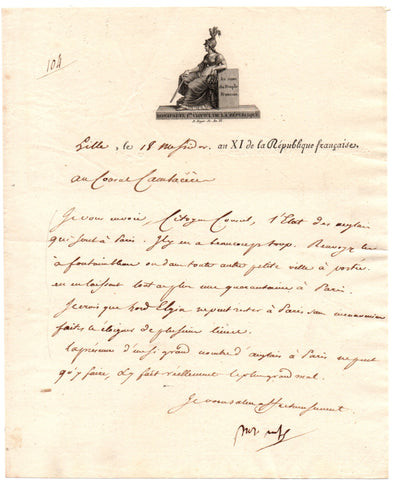 104
Au nom
du Peuple
Français
BONAPARTE, 1er CONSUL DE LA RÉPUBLIQUE
Lille, le 18 Messidor, an XI de la République française.
au Consul Cambacérès
Je vous envoie, Citoyen Consul, l'Etat des anglais
qui sont à Paris. Il y en a beaucoup trop. Renvoyez les
à fontainebleau ou dans toute autre petite ville à portée.
en en laissant tout au plus une quarantaine à Paris.
Je crois que Lord Elgin ne peut rester à Paris
faites le éloigner de plusieurs lieues.
La présence d'un si grand nombre d'anglais à Paris ne peut
qu'y faire, et y fait réellement le plus grand mal.
Je vous salue affectueusement.